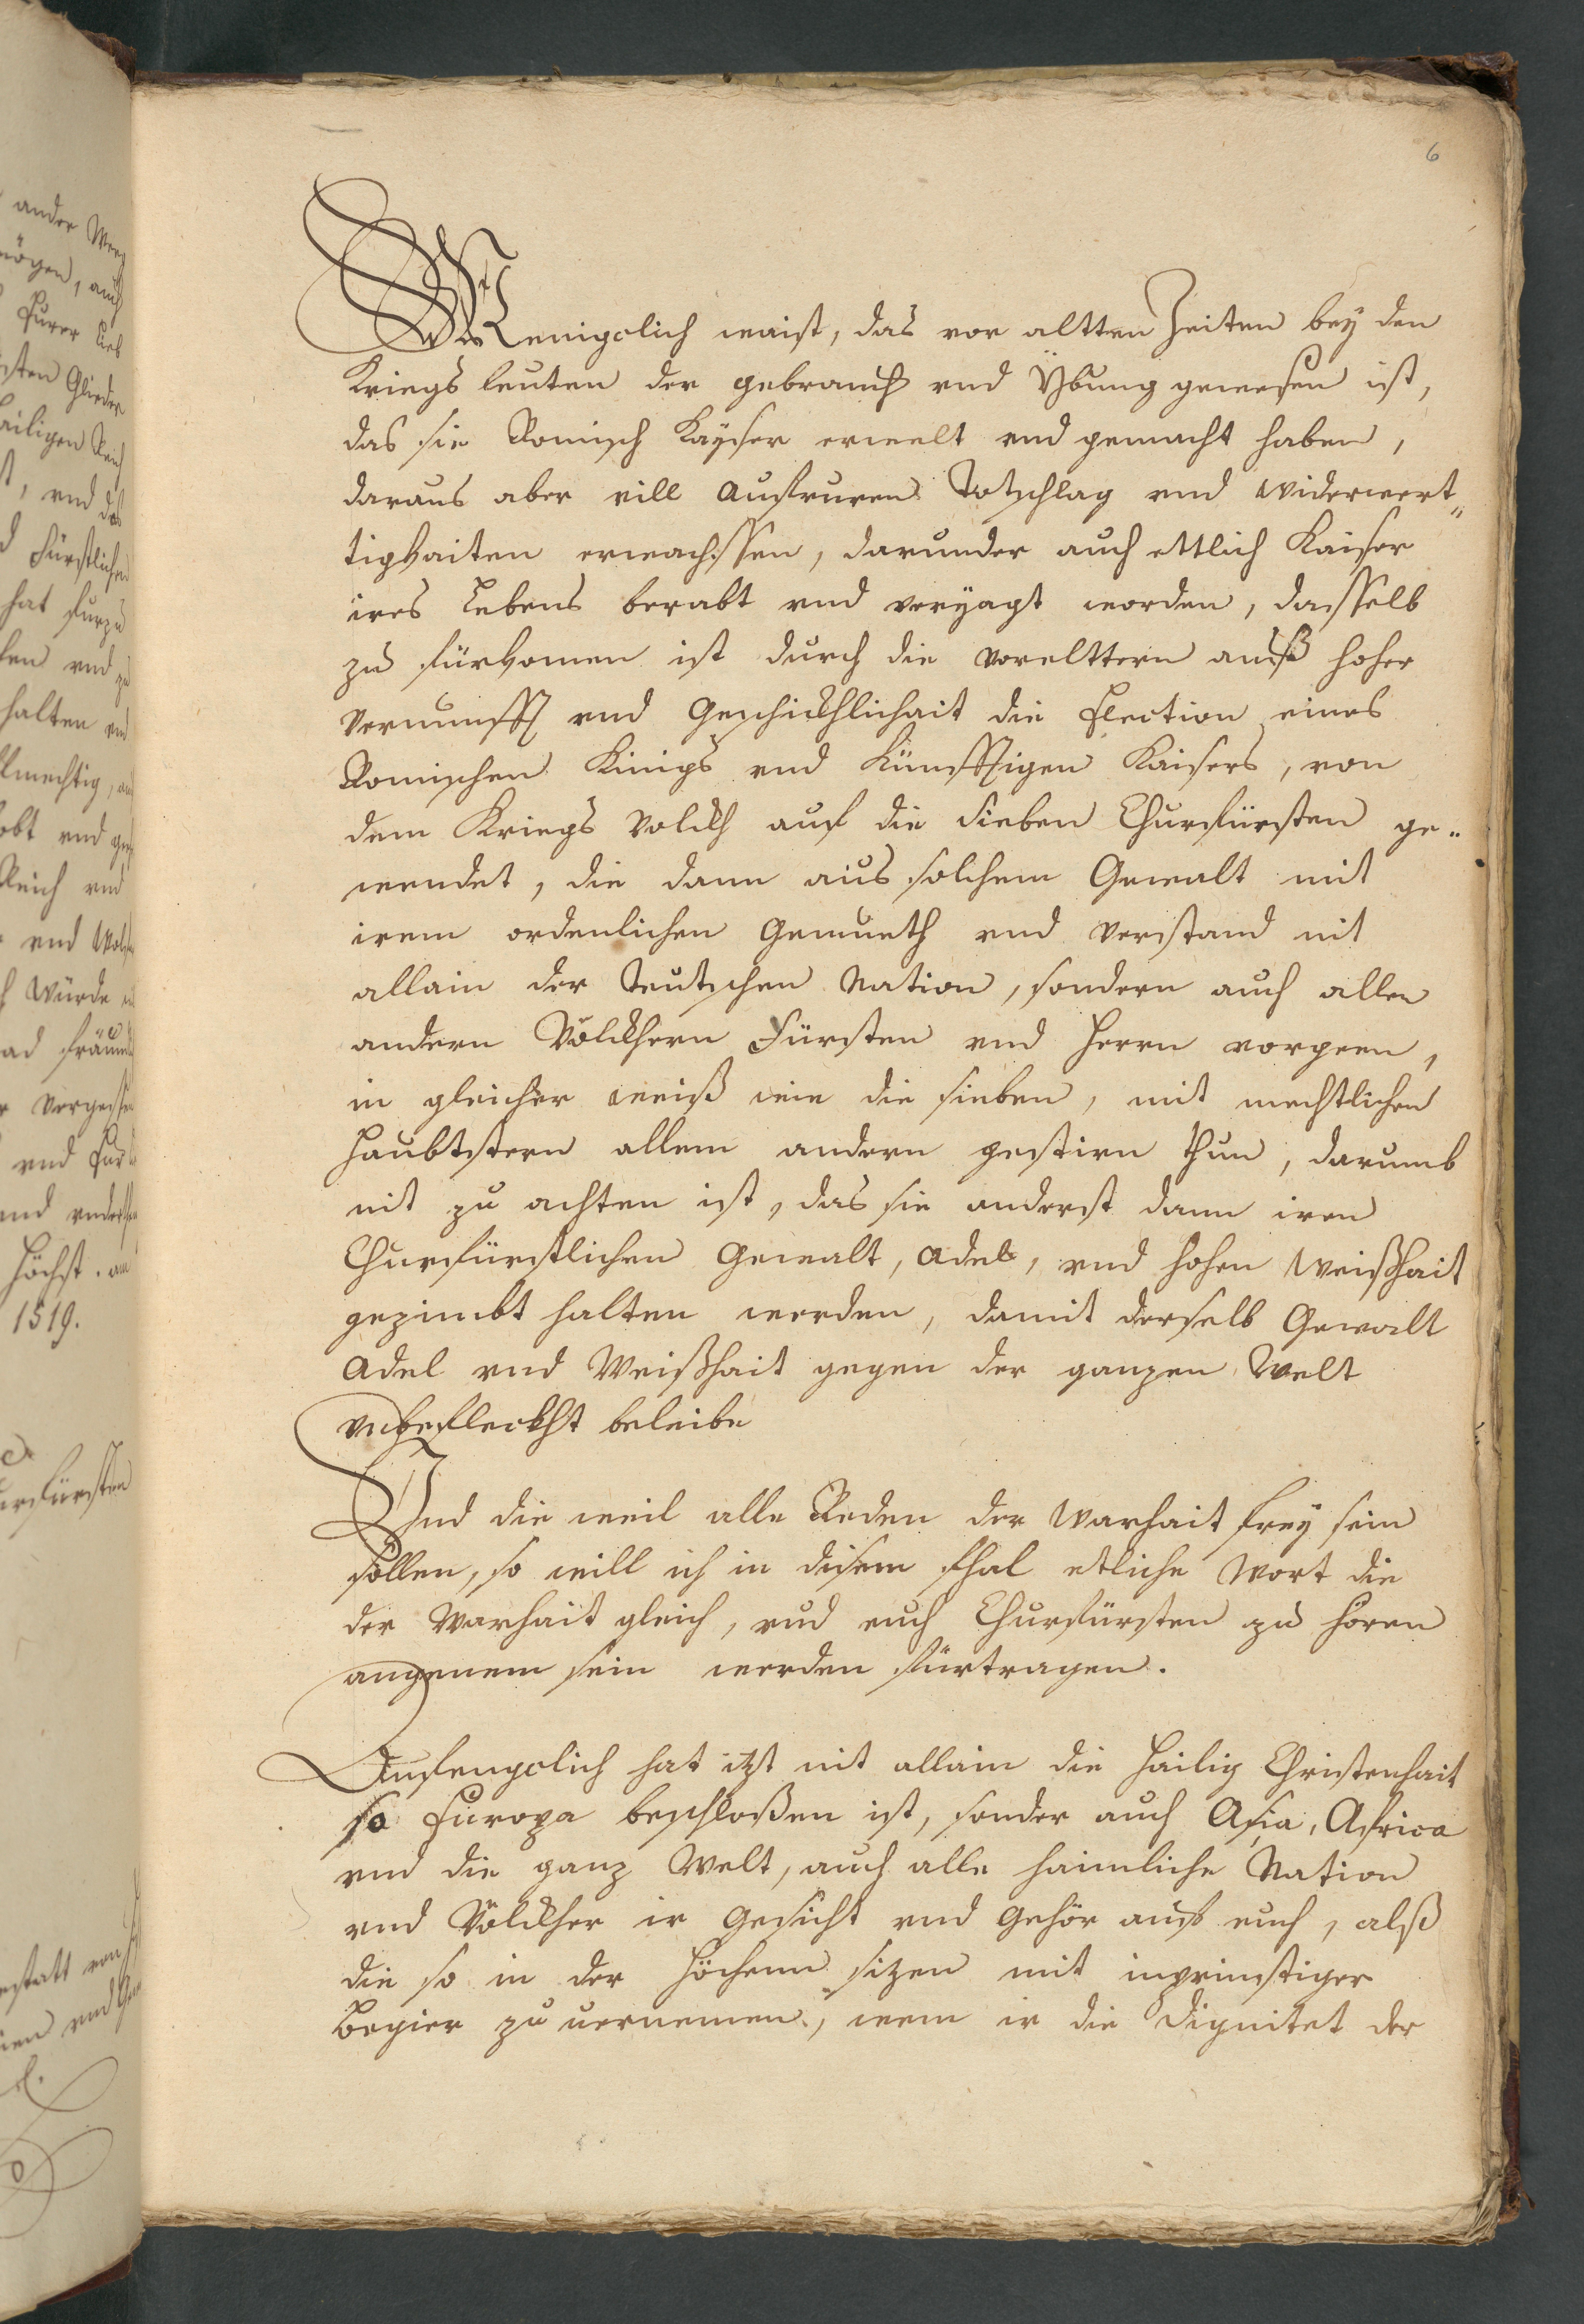 6
Menigclich waist, das vor altten Zeiten bey den
Kriegs leuten der gebrauch vnd Ybung gewesen ist,
das sie Romisch Kayser erwelt vnd gemacht haben,
daraus aber vill Aufruren Totschlag vnd widerwert„
tigkaiten erwachssen, darunder auch ettlich Kaiser
ires Lebens berabt vnd veryagt worden, dasselb
zu fürkomen ist durch die vorelttern auß hoher
vernunfft vnd Geschickhlichait die Election eines
Romischen Kinigs vnd Künfftigen Kaisers, von
dem Kriegs volckh auf die Sieben Churfürsten ge„
wendet, die dann aus solchem Gewalt mit
irem ordenlichen Gemueth vnd verstand nit
allain der Teutschen Nation, sondern auch allen
andern Völckhern Fürsten vnd Herrn vorgeen,
in gleicher weiß wie die sieben, mit mechtlichen
Haubtstern allem andern gestirn thun, darumb
nit zu achten ist, das sie anderst dann iren
Churfürstlichen Gewalt, Adels, vnd hohen Weißhait
gezimbt halten werden, damit derselb Gewalt
Adel vnd Weißhait gegen der ganzen Welt
vnbefleckht beleibe
Und die weil alle Reden der Warhait frey sein
sollen, so will ich in disem fhal etliche Wort die
der Warhait gleich, vnd euch Churfürsten zu horen
angenem sein werden fürtragen.
Anfengclich hat itzt nit allain die Hailig Christenhait
so Europa beschloßen ist, sonder auch Asia, Africa
vnd die ganz Welt, auch alle haimliche Nation
vnd Völckher ir Gesicht vnd Gehör auf euch, alß
die so in der Höchenn sizen mit inprinstiger
Begier zu uernemen, wem ir die Dignitet der
1519.